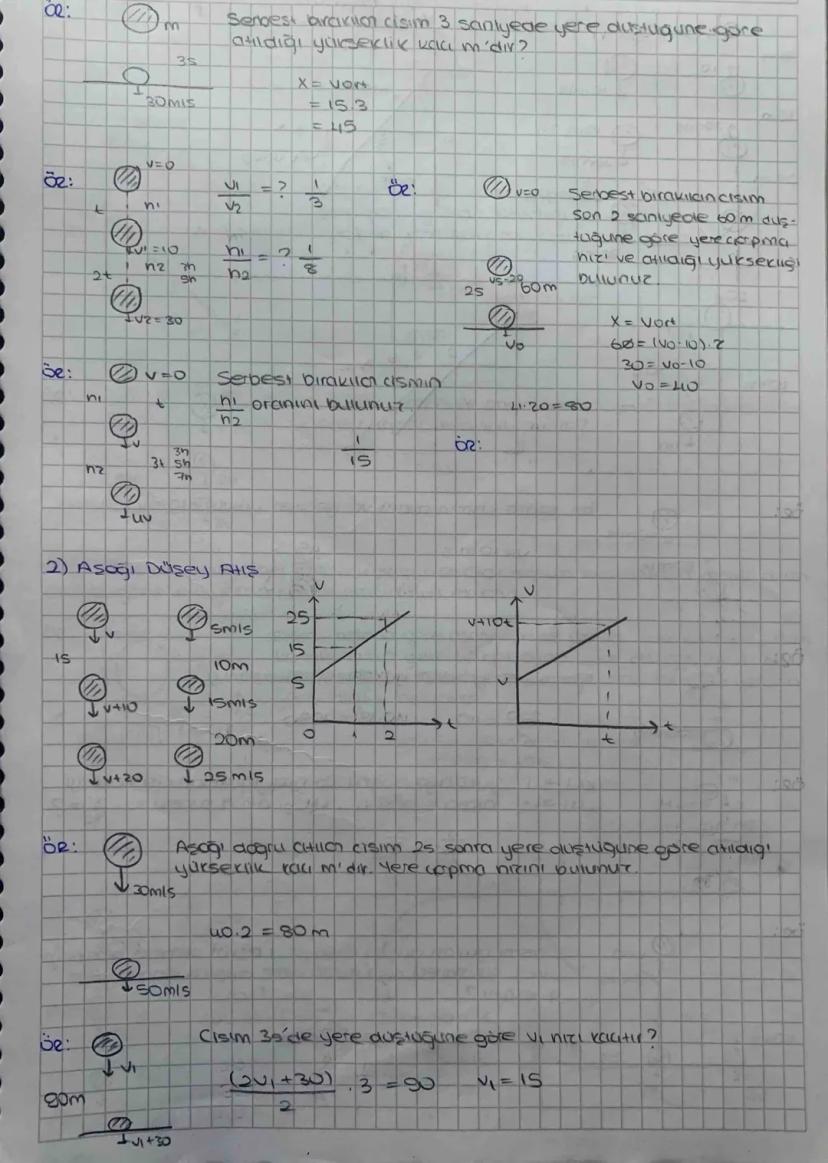 ÖR:
m
Serbest bırakılan cisim 3 saniyede yere düştüğüne göre
atıldığı yükseklik kaç m'dir?
3s
30m/s
x = Vort
= 15.3
= 45
ÖR:
v=0
t
h1
v1=10
2t
h2
3h
5h
v2=30
v1/v2 = ? 1/3
h1/h2 = ? 1/8
ÖR:
v=0
Serbest bırakılan cisim
son 2 saniyede 60m düş-
tüğüne göre yere çarpma
hızı ve atıldığı yüksekliği
bulunuz.
2s
60m
v0
x = Vort
60=(v0-10).2
30=v0-10
v0=40
4.20=80
ÖR:
v=0
Serbest bırakılan cismin
h1/h2 oranını bulunuz
h1
t
v
h2
3t
3h
5h
7h
4v
1/15
ÖR:
2) Aşağı Düşey Atış
v
1s
v+10
v+20
5m/s
10m
15m/s
20m
25m/s
v
25
15
5
0
1
2
t
v
v+10t
v
t
t
ÖR:
Aşağı doğru atılan cisim 2s sonra yere düştüğüne göre atıldığı
yükseklik kaç m'dir. Yere çarpma hızını bulunuz.
30m/s
40.2=80m
50m/s
ÖR:
Cisim 3s'de yere düştüğüne göre v1 hızı kaçtır?
v1
(2v1+30)/2 .3 = 90
v1=15
90m
v1+30